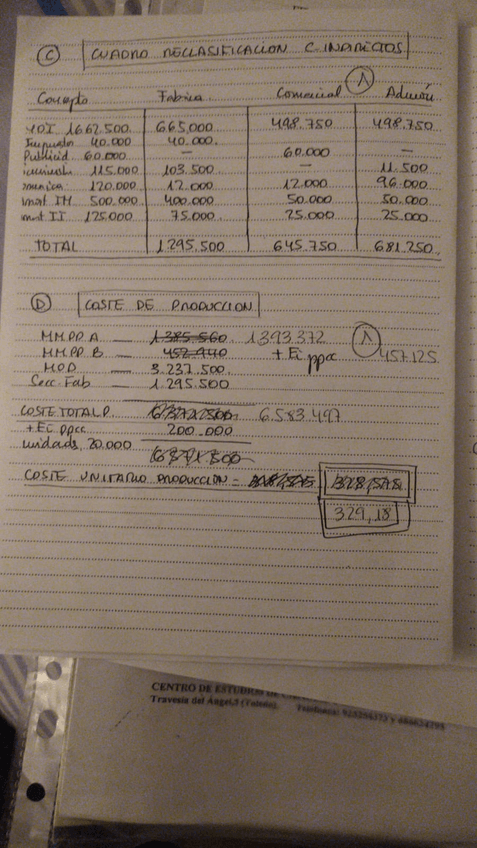 C CUADRO RECLASIFICACION C. INDIRECTOS
1
Concepto Fabrica Comercial Admón
MOI 1.662.500. 665.000 498.750 498.750
Impuesto 40.000 40.000. —
Publicid 60.000 — 60.000 —
115.000 103.500 — 11.500
120.000 12.000 12.000 96.000
Amort IM 500.000 400.000 50.000 50.000
Amort II 125.000 75.000 25.000 25.000
TOTAL 1.295.500 645.750 681.250
D COSTE DE PRODUCCION
MMPP A — 1.385.560 1.393.372 1
MMPP B — 452.940 + Ei ppcc 457.125
MOD — 3.237.500.
Secc. Fab — 1.295.500
COSTE TOTAL P. 6.583.497
+ Ei ppcc 200.000
unidads 20.000
COSTE UNITARIO PRODUCCION =
329,18
CENTRO DE ESTUDIOS DE
Travesía del Ángel,3 (Toledo). Teléfonos: